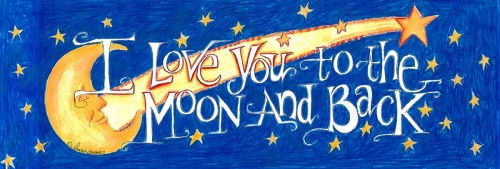 I Love You to the
Moon and Back